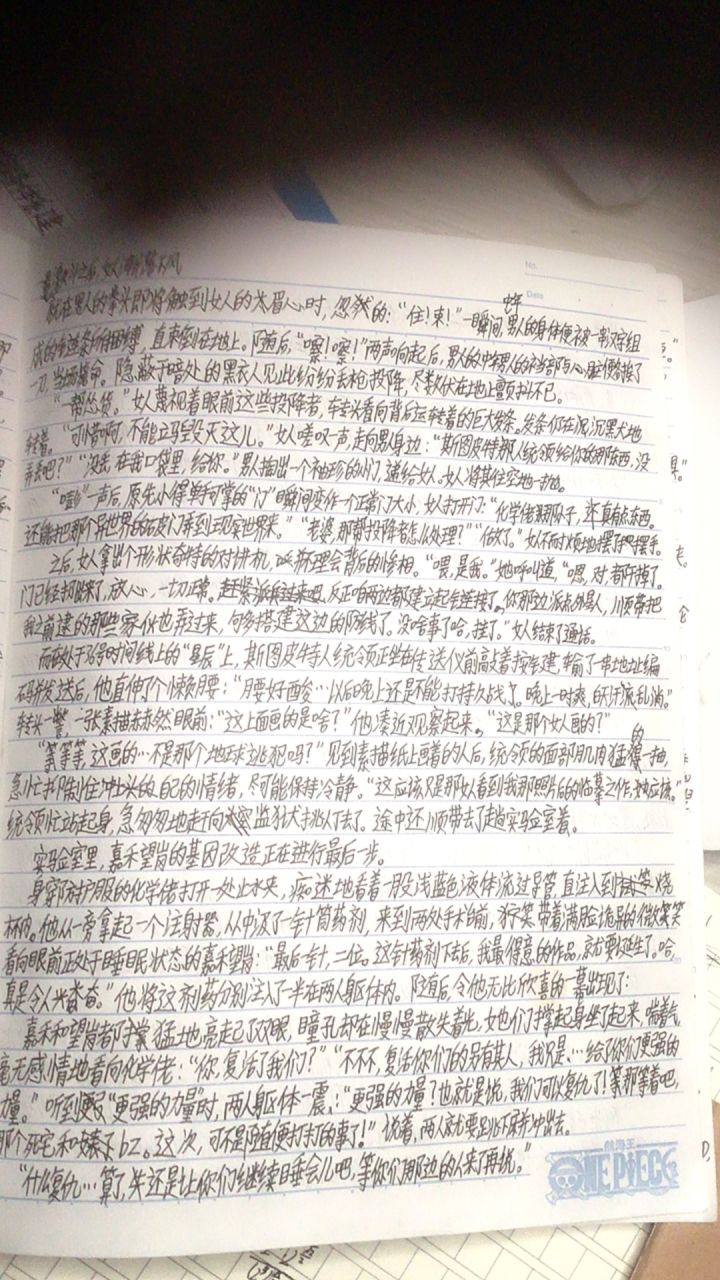 No.
Date
就在男人的拳头即将触到女人的眉心时，忽然的：“住！束！”一瞬间，男人的身体便被一串汉字组
成的链条所捆缚，直束倒在地上。随后，“嚓！嚓！”两声向起后，
一刀，当场毙命。隐蔽于暗处的黑衣人见此纷纷丢枪投降，尽数伏在地上颤抖不已。
“一帮怂货。”女人蔑视着眼前这些投降者，转头看向背后运转着的巨大发条。发条仍在沉沉黑犬地
转着。“可惜啊，不能立马毁灭这儿。”女人嗟叹一声，走向男身边：“斯图皮特那人统领给你的那东西，没
弄丢吧？”“没丢，在我口袋里，给你。”男人掏出一个袖珍的小门，递给女人。女人将其往空地一抛。
一声后，原先小得单手可掌的“门”瞬间变作一个正常门大小，女人打开门：“化学佬那脑子，还真有点东西。
还能把那个异世界的石皮门弄到现实世界来。”“老婆，那帮投降者怎么处理？”“你放了。”女人不耐烦地摆了摆手。
之后，女人拿出个形状奇特的对讲机，背后的惨相。“喂，是我。”她呼叫道，“嗯，对，都解掉了。
门已经打开了，放心，一切正常。赶紧派兵过来吧，反正咱两边都建立起链接了。你那边派点外星人，顺带把
我之前逮的那些家伙也弄过来，何多搭建这边的防线了。没啥事了哈，挂了。”女人结束了通话。
而在处于36号时间线上的“星辰”上，斯图皮特人统领正坐在传送仪前敲着按键，输了一串地址编
码并发送后，他直伸了个懒腰：“腰好酉俊…以后晚上还是不能打持久战了。晚上一时爽，
转头一瞥，一张素描赫然眼前：“这上面画的是啥？”他凑近观察起来。“这是那个女人画的？”
“等等等，这画的…不是那个地球逃犯吗？”见到素描纸上画着的人后，统领的面部肌肉猛的一抽，
急忙抑制住冲上头的自己的情绪，尽可能保持冷静。“这应该只是那女看到我那照片后的临摹之作，
统领忙站起身，急匆匆地走向监狱去了。途中还顺带去了趟实验室着。
实验室里，嘉禾望岗的基因改造正在进行最后一步。
身穿防护服的化学佬打开一处止水夹，痴迷地看着一股浅蓝色液体流过导管，直注入到试管烧
杯内。他从一旁拿起一个注射器，从中汲了一针筒药剂，来到两处手术台前，带着满脸诡异的微笑
看向眼前正处于睡眠状态的嘉禾望岗：“最后一针，二位。这针药剂下去后，我最得意的作品，就要诞生了。哈，
真是令人兴奋。”他将这剂药分别注入了一半在两人躯体内。随后，令他无比欣喜的一幕出现了：
嘉禾和望岗都掌猛地亮起了双眼，瞳孔却在慢慢散失着光，她们撑起身坐了起来，喘着气，
毫无感情地看向化学佬：“你，复活了我们？”“不不，复活你们的另有其人，我只是…给了你们更强的
力量。”听到“更强的力量”时，两人躯体一震：“更强的力量？也就是说，我们可以复仇了！等那等着吧，
那个死宅和嫀子bz。这次，可不是随便打打的事了！”说着，两人就要跳下床并冲出去。
“什么复仇…算了，先还是让你们继续睡会儿吧，等你们那边的人来了再说。”
航海王
ONE PIECE